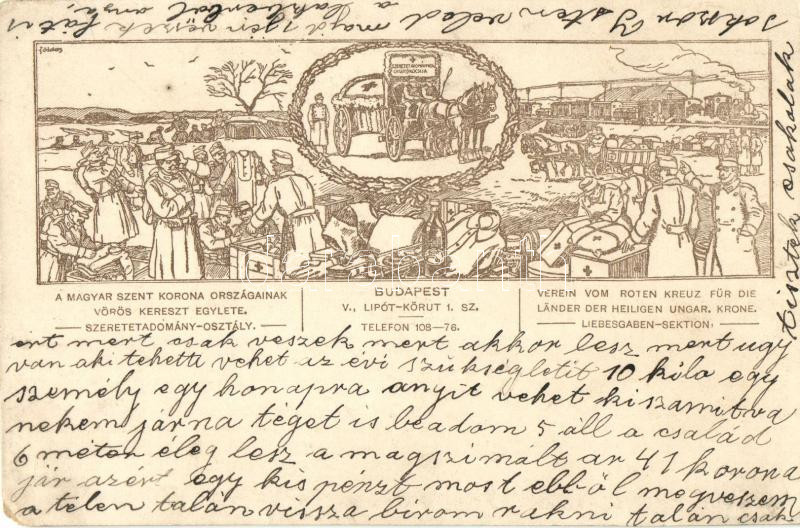 tokszor Isten veled majd 1jén veszek fát is
a
Tisztek csakolak
Földes
SZERETETADOMÁNYOK
GYÜJTŐKOCSIJA
A MAGYAR SZENT KORONA ORSZÁGAINAK
VÖRÖS KERESZT EGYLETE.
SZERETETADOMÁNY-OSZTÁLY.
BUDAPEST
V., LIPÓT-KÖRUT 1. SZ.
TELEFON 108—76.
VEREIN VOM ROTEN KREUZ FÜR DIE
LÄNDER DER HEILIGEN UNGAR. KRONE.
LIEBESGABEN-SEKTION.
ert mert csak veszek mert akkor lesz mert ugy
van aki teheti vehet az évi szükségletit 10 kilo egy
személy egy honapra anyit vehet kiszamitva
nekem járna téget is beadom 5 áll a család
6 méter élég lesz a magszimált ar 41 korona
jár azért egy kis pénzt most ebböl megveszem
a telen talán vissza birom rakni talán csak